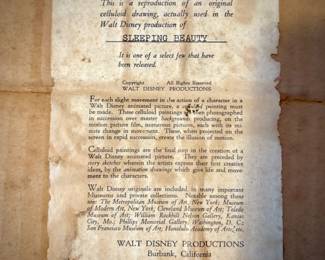 This is a reproduction of an original
celluloid drawing, actually used in the
Walt Disney production of
SLEEPING BEAUTY
It is one of a select few that have
been released.
Copyright All Rights Reserved
WALT DISNEY PRODUCTIONS
For each slight movement in the action of a character in a
Walt Disney animated picture, a painting must
be made. These celluloid paintings photographed
in succession over master background, producing, on the
motion picture film, numerous pictures, each with its mi-
nute change in movement. These, when projected on the
screen in rapid succession, create the illusion of motion.
Celluloid paintings are the final step in the creation of a
Walt Disney animated picture. They are preceded by
story sketches wherein the artists express their first creative
ideas, by the animation drawings which give life and move-
ment to the characters.
Walt Disney originals are included in many important
Museums and private collections. Notable among these
are: The Metropolitan Museum of Art, New York; Museum
of Modern Art, New York; Cleveland Museum of Art; Toledo
Museum of Art; William Rockhill Nelson Gallery, Kansas
City, Mo.; Phillips Memorial Gallery, Washington, D. C.;
San Francisco Museum of Art; Honolulu Academy of Arts; etc.
WALT DISNEY PRODUCTIONS
Burbank, California